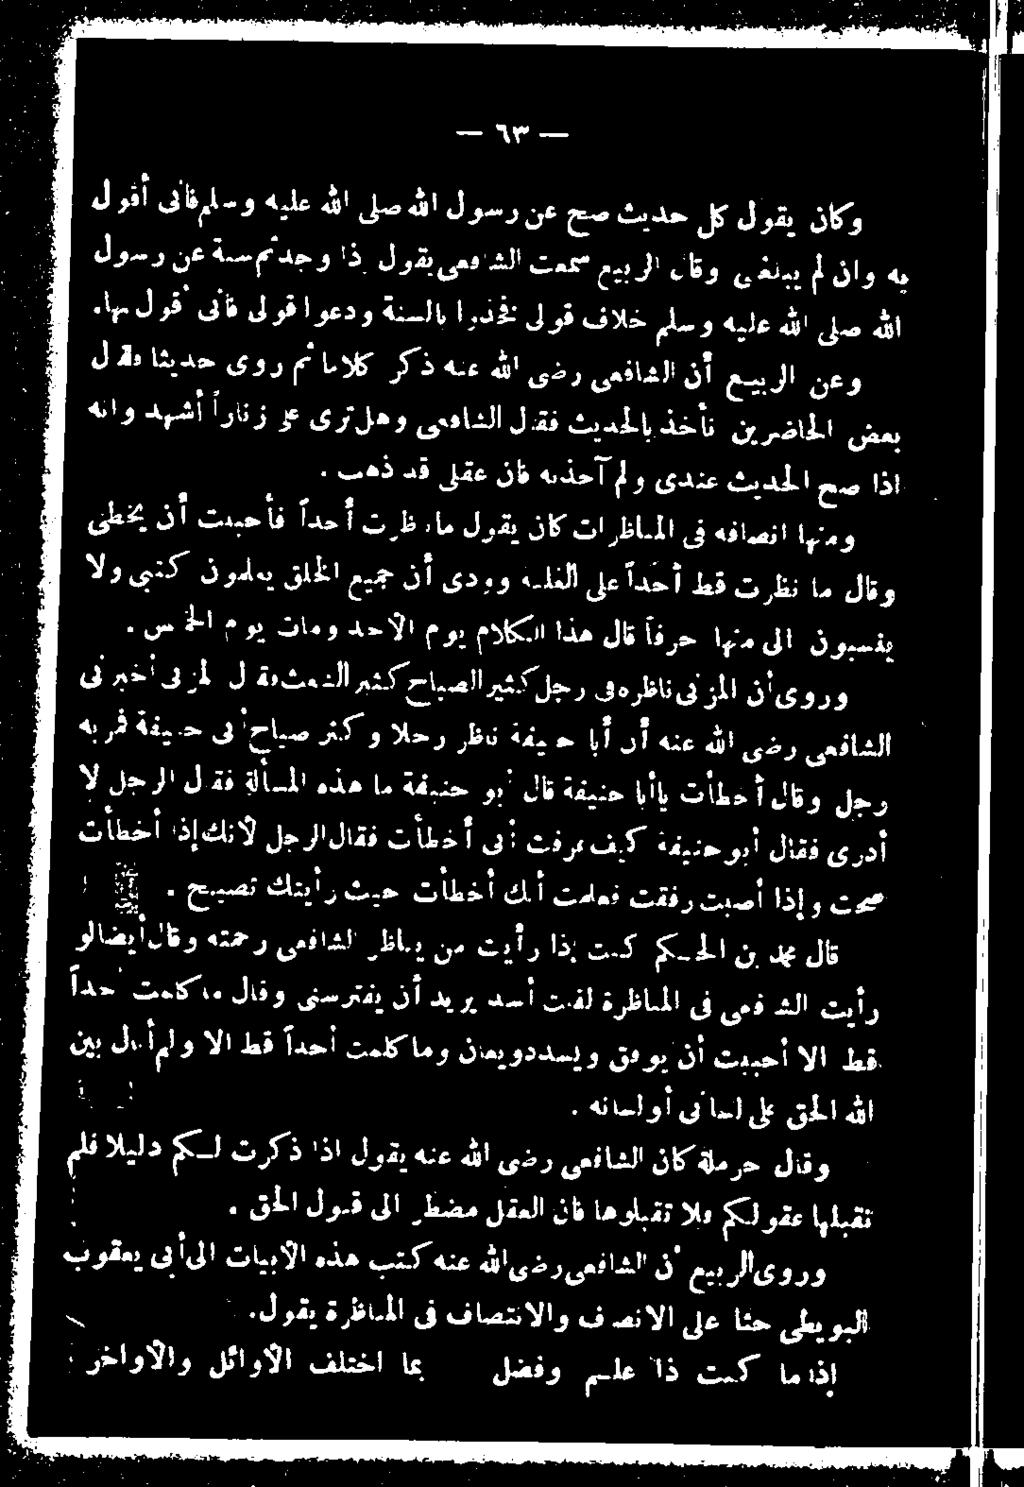 — ٦٣ —
وكان يقول كل حديث صح عن رسول الله صلى الله عليه وسلم فأنى أقول
به وان لم يبلغنى وقال الربيع سمعت الشافعى يقول إذا وجدتم سنة عن رسول
الله صلى الله عليه وسلم خلاف قولى فخذوا بالسنة ودعوا قولى فأنى أقول بها.
وعن الربيع أن الشافعى رضى الله عنه ذكر كلاما ثم روى حديثا فقال
بعض الحاضرين نأخذ بالحديث فقال الشافعى وهل ترى على زناراً أشهد وانه
اذا صح الحديث عندى ولم آخذ به فان عقلى قد ذهب .
ومنها انصافه فى المناظرات كان يقول ما ناظرت أحداً فأحببت أن يخطى
وقال ما نظرت قط أحداً على الغلبة وودى أن جميع الخلق يعلمون كتبى ولا
ينسبون الى منها حرفاً قال هذا الكلام يوم الأحد ومات يوم الخميس .
وروى أن المزنى ناظره فى رجل كثير الصياح كثير الشغب فقال المزنى أخبرنى
الشافعى رضى الله عنه أن أبا حنيفة ناظر رجلا وكثر صياح أبى حنيفة فمر به
رجل وقال أخطأت يا أبا حنيفة قال أبو حنيفة ما هذه المسألة فقال الرجل لا
أدرى فقال أبو حنيفة كيف عرفت أنى أخطأت فقال الرجل لأنك إذا أخطأت
صحت وإذا أصبت رفقت فعلمت أنك أخطأت حيث رأيتك تصيح .
قال محمد بن الحكم كنت إذا رأيت من يناظر الشافعى رحمته وقال أيضا لو
رأيت الشافعى فى المناظرة لقلت أسد يريد أن يفترسنى وقال ما كلمت أحداً
قط الا أحببت أن يوفق ويسدد ويعان وما كلمت أحداً قط الا ولم أبال بين
الله الحق على لسانى أو لسانه .
وقال حرملة كان الشافعى رضى الله عنه يقول اذا ذكرت لكم دليلا فلم
تقبلها عقولكم فلا تقبلوها فان العقل مضطر الى قبول الحق .
وروى الربيع أن الشافعى رضى الله عنه كتب هذه الأبيات الى أبى يعقوب
البويطى حثا على الانصاف والانتصاف فى المناظرة يقول.
إذا ما كنت ذا علم وفضل بما اختلف الأوائل والأواخر